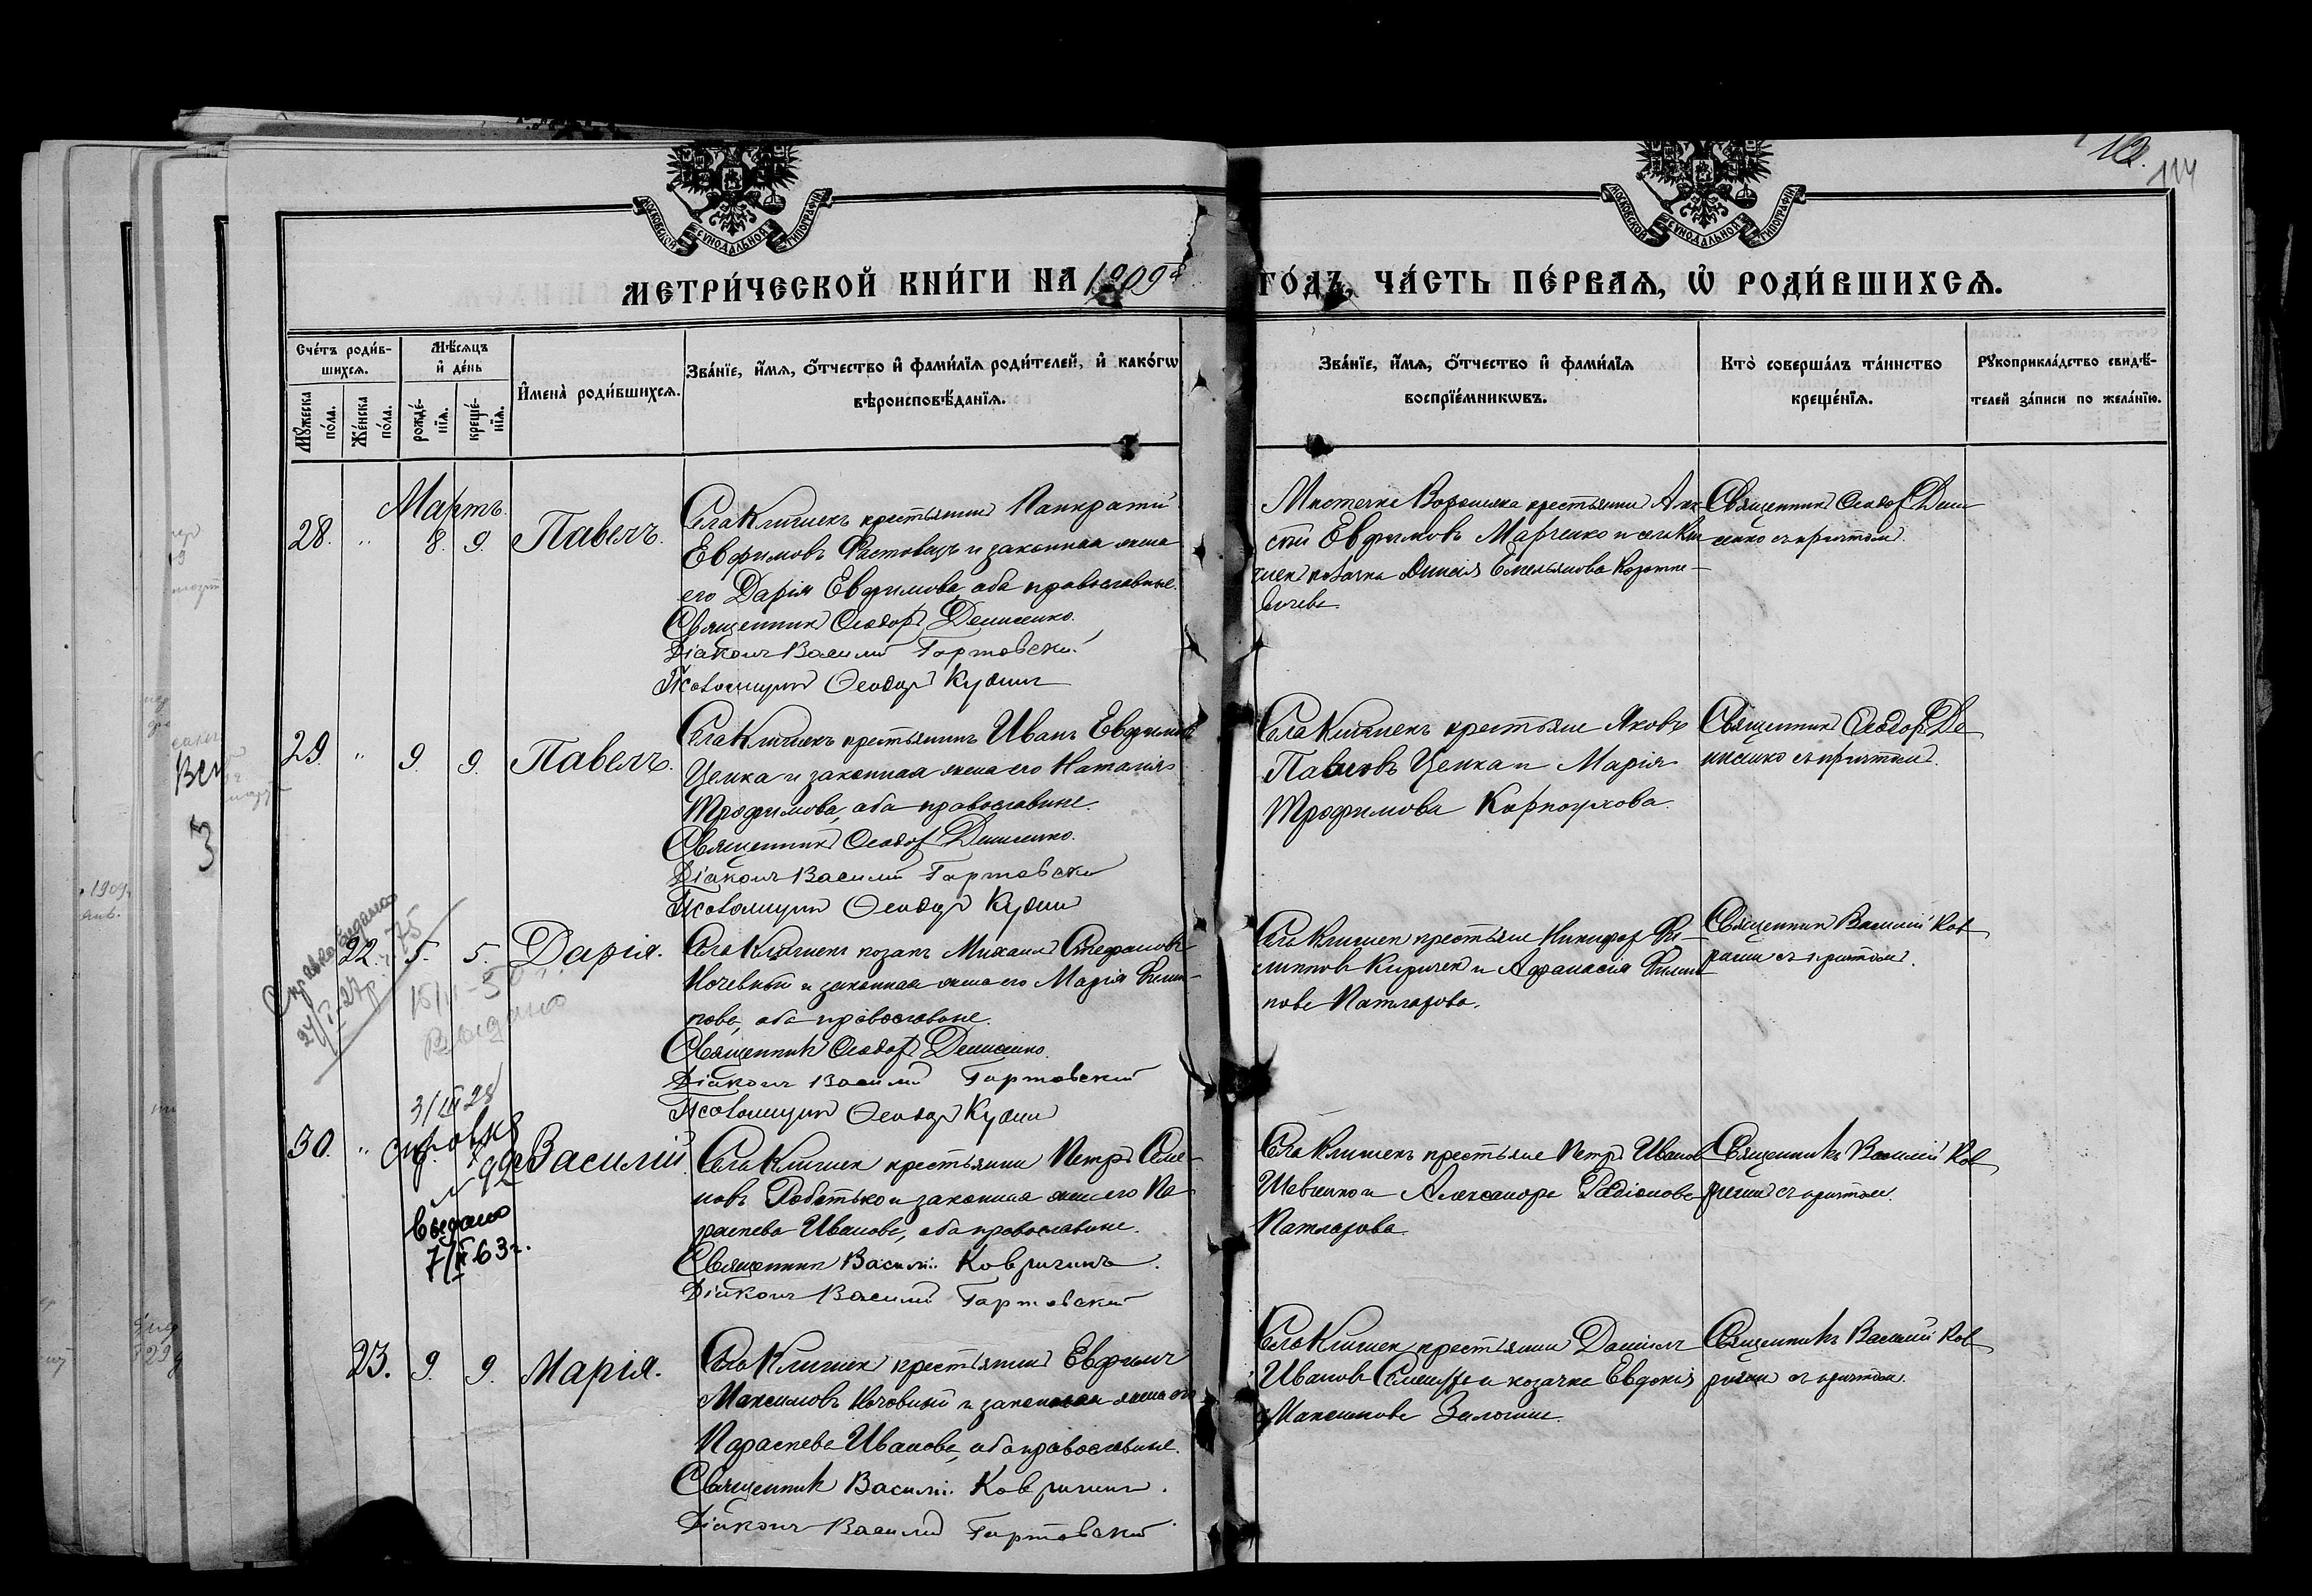 12.
114
МОСКОВСКОЙ СѴНОДАЛЬНОЙ ТИПОГРАФІИ
МОСКОВСКОЙ СѴНОДАЛЬНОЙ ТИПОГРАФІИ
МЕТРИ́ЧЕСКОЙ КНИ́ГИ НА 1909 ГО́ДЪ, ЧА́СТЬ ПЕ́РВАѦ, Ѡ҆ РОДИ́ВШИХСѦ.
Сче́тъ роди́в-
шихсѧ.
Мꙋ́жеска по́ла.
Же́нска по́ла.
Мѣ́сѧцъ
и҆ де́нь
рожде́-
нїѧ.
креще́-
нїѧ.
И҆мена̀ роди́вшихсѧ.
Зва́нїе, и҆́мѧ, ѻ҆́тчество и҆ фами́лїѧ роди́телей, и҆ како́гѡ
вѣроисповѣ́данїѧ.
Зва́нїе, и҆́мѧ, ѻ҆́тчество и҆ фами́лїѧ
воспрїе́мникѡвъ.
Кто̀ соверша́лъ та́инство
креще́нїѧ.
Рꙋкоприкла́дство свидѣ́-
телей за́писи по жела́нїю.
Мартъ.
28. " 8. 9. Павелъ.
Села Клишекъ крестьянинъ Панкратій
Евфимовъ Ростовецъ и законная жена
его Дарія Евфимова, оба православные.
Священникъ Ѳеодоръ Денисенко.
Діаконъ Василій Гортовскій
Псаломщикъ Ѳеодоръ
Местечка Воронежа крестьянинъ Алек
сѣй Евфимовъ Марченко и села Кли
шекъ козачка Емельянова
Священникъ Ѳеодоръ Дени
сенко съ причтомъ.
29. " 9. 9. Павелъ.
Села Клишекъ крестьянинъ Иванъ Евфимовъ
Цепка и законная жена его Наталія
Трофимова, оба православные.
Священникъ Ѳеодоръ Денисенко.
Діаконъ Василій Гортовскій
Псаломщикъ Ѳеодоръ
Села Клишекъ крестьяне Яковъ
Павловъ Цепка и Марія
Трофимова Карпоухова.
Священникъ Ѳеодоръ Де
нисенко съ причтомъ.
22. 5. 5. Дарія.
Села Клишекъ козакъ Михаилъ Стефановъ
Ночевный и законная жена его Марія Филип-
пова, оба православные.
Священникъ Ѳеодоръ Денисенко.
Діаконъ Василій Гортовскій
Псаломщикъ Ѳеодоръ
Села Клишекъ крестьяне Никифоръ Фи-
липповъ Киричекъ и Афанасія Филип
пова Патларова.
Священникъ Василій Ков
ригинъ съ причтомъ.
Справка выдана
Выдано
3/III 28
справка
№ 992
выдано
7/II 63 г.
30. " Василій
Села Клишекъ крестьянинъ Петръ Семе-
новъ и законная жена его Па
раскева Иванова, оба православные.
Священникъ Василій Ковригинъ.
Діаконъ Василій Гортовскій
Села Клишекъ крестьяне Петръ Ивановъ
Шевченко и Александра Родіонова
Патларова.
Священникъ Василій Ков
ригинъ съ причтомъ.
23. 9. 9. Марія.
Села Клишекъ крестьянинъ Евфимъ
Максимовъ Ночовный и законная жена его
Параскева Иванова, оба православные.
Священникъ Василій Ковригинъ.
Діаконъ Василій Гортовскій
Села Клишекъ крестьянинъ Даніилъ
Ивановъ и козачка Евдокія
Максимова
Священникъ Василій Ков
ригинъ съ причтомъ.